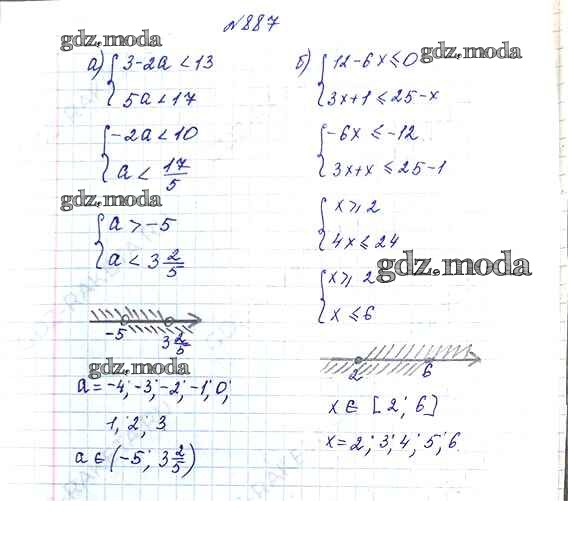 №887
gdz.moda
а) { 3-2a < 13
5a < 17
{ -2a < 10
a < 17/5
gdz.moda
{ a > -5
a < 3 2/5
-5 3 2/5
gdz.moda
a = -4; -3; -2; -1; 0;
1; 2; 3
a ∈ (-5; 3 2/5)
б) { 12-6x ≤ 0
gdz.moda
3x+1 ≤ 25-x
{ -6x ≤ -12
3x+x ≤ 25-1
{ x ≥ 2
4x ≤ 24
gdz.moda
{ x ≥ 2
x ≤ 6
2 6
x ∈ [2; 6]
x = 2; 3; 4; 5; 6.